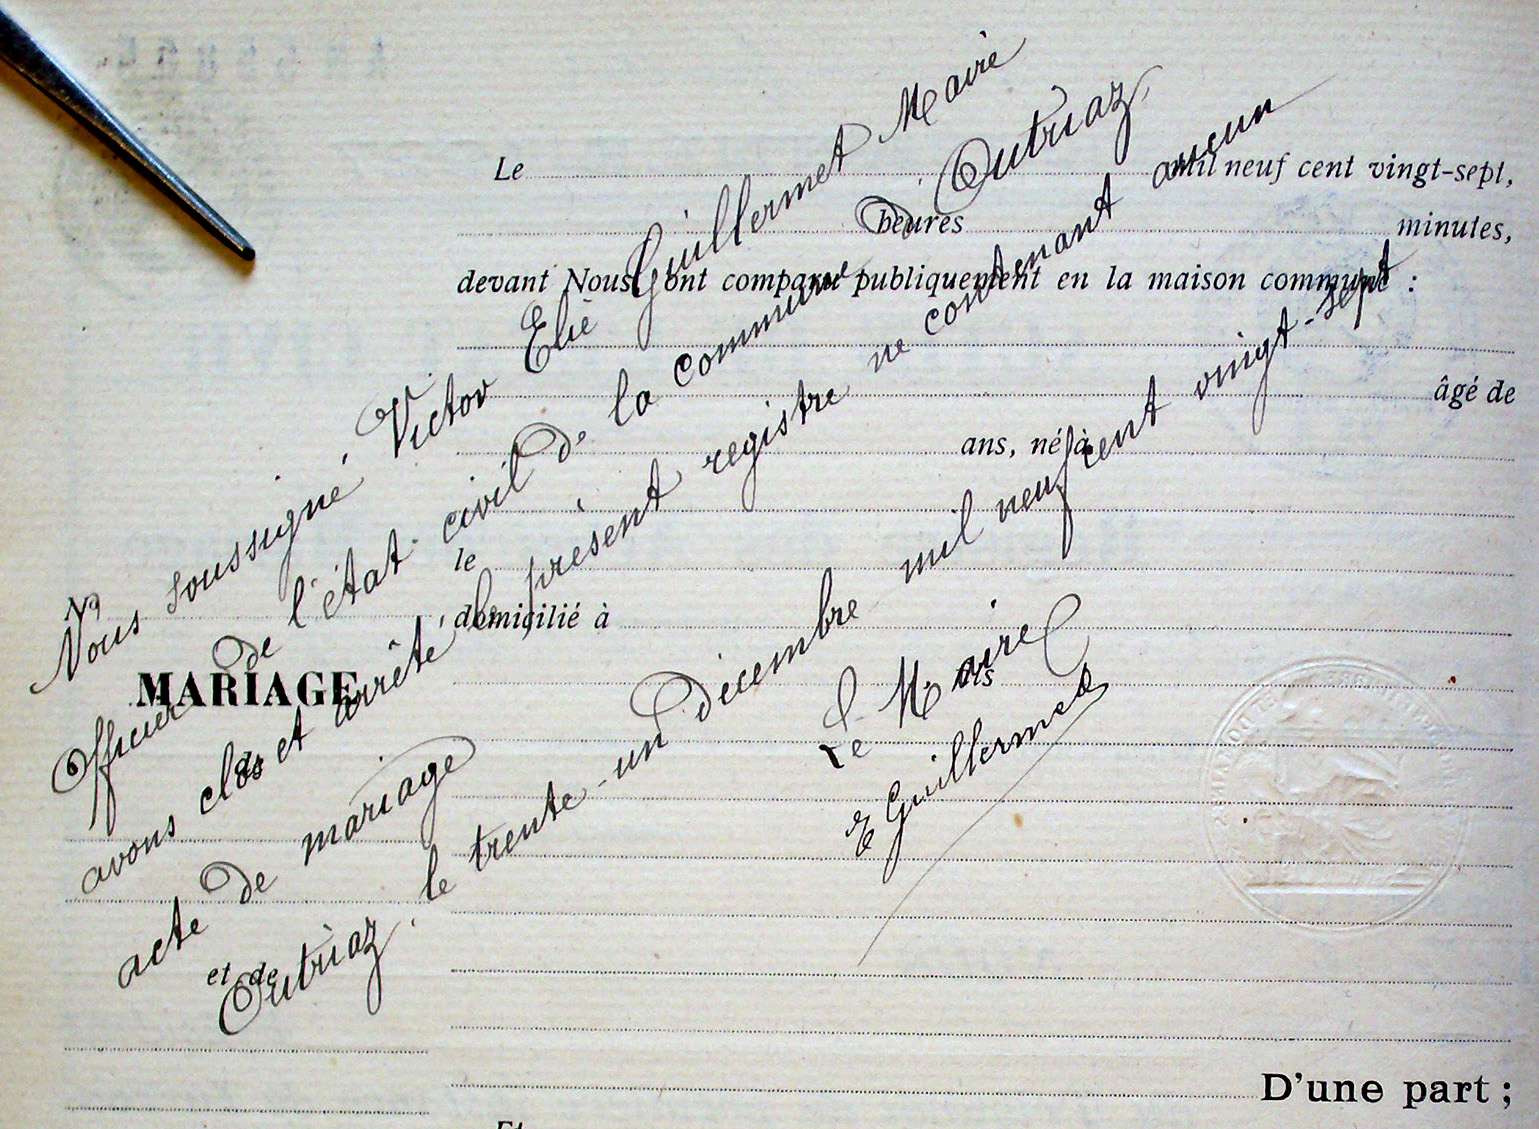 Le mil neuf cent vingt-sept,
heures minutes,
devant Nous ont comparu publiquement en la maison commune :
âgé de
ans, né à
le
domicilié à
fils
No
MARIAGE
de
et de
D'une part ;
Et
Nous soussigné Victor Elie Guillermet Maire
Officier de l'état civil de la commune d'Outriaz,
avons clos et arrêté le présent registre ne contenant aucun
acte de mariage
Outriaz, le trente-un Décembre mil neuf cent vingt-sept
Le Maire
E Guillermet